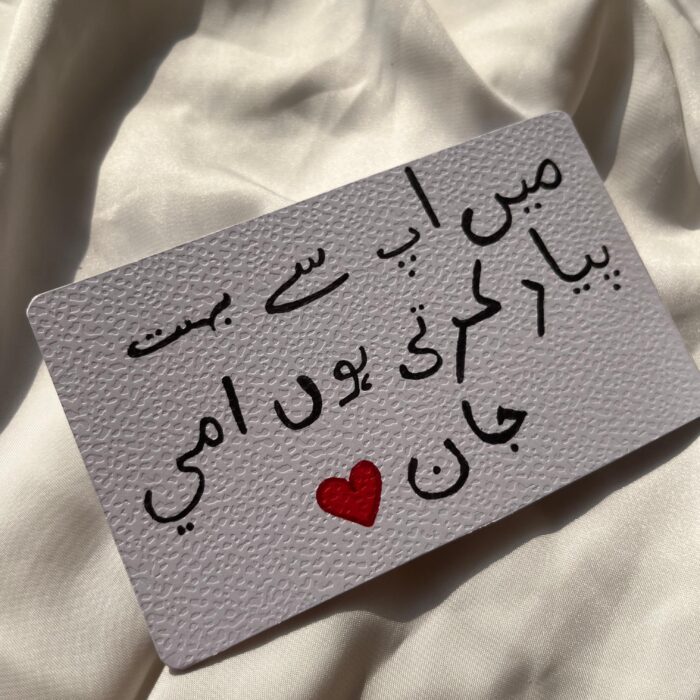 میں اپ سے بہت
پیار کرتی ہوں امي
جان